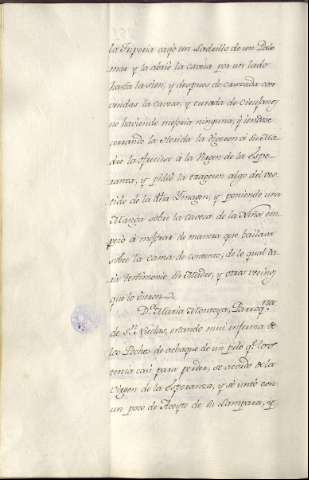 la Espina cayo un Ladrillo de un Palo
mar y la abrio la caveza por un lado
hasta la sien, y despues de curada con
vendas la cavez. y curada de Cirujano,
no haviendo mejoria ninguna, y
cerrando la herida la
dre la ofrecio a la Virgen de la Espe-
ranza, y pidio la traxesen algo del ves-
tido de la Sta. Ymagen, y poniendo una
Manga sobre la caveza de la Niña em-
pezo á mejorar de manera que bailava
sobre la cama de contento, de lo qual da-
ra testimonio su Madre, y otros testigos
que lo vieron.
Da. Maria Montoya, Parroqna.
de Sn. Nicolas, estando mui enferma de
los Pechos de achaque de un pelo qe. los
tenia casi para perder, se acordo de la
Virgen de la Esperanza, y se untó con
un poco de Aceyte de su Lampara, y